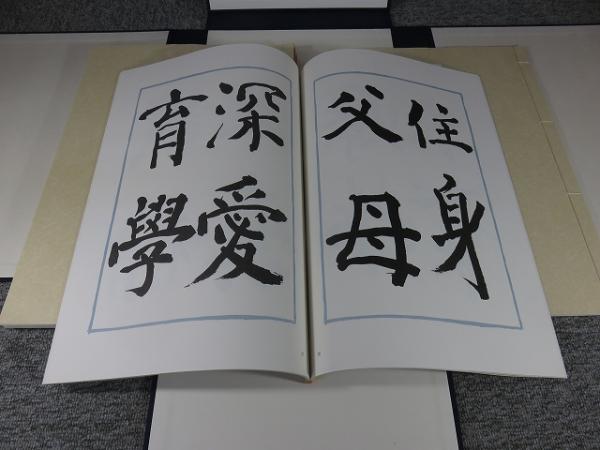 住身
父母
深愛
育學